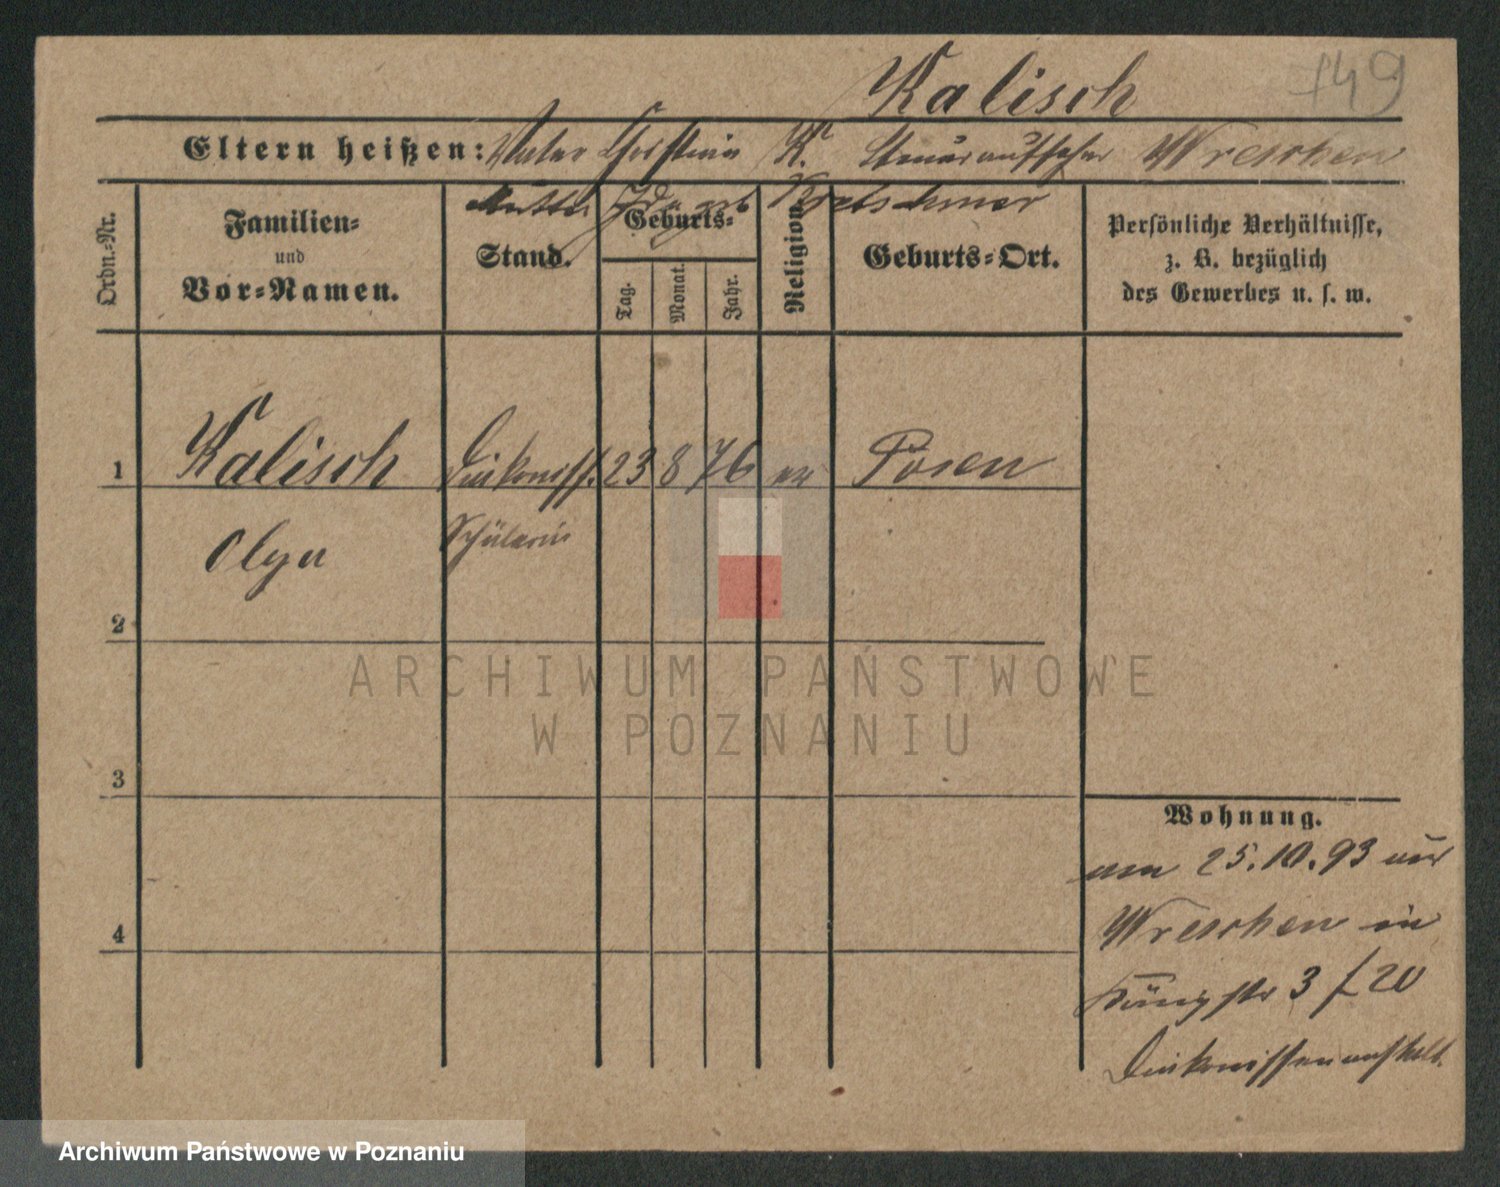 Kalisch 149
Eltern heißen: Vater Christian K. Steueraufseher Wreschen
Mutter Ida geb Kretschmer
Ordn.-Nr.
Familien-
und
Vor-Namen.
Stand.
Geburts-
Tag.
Monat.
Jahr.
Religion.
Geburts-Ort.
Persönliche Verhältnisse,
z. B. bezüglich
des Gewerbes u. s. w.
1 Kalisch Diakoniss. 23 8 76 ev Posen
Olga Schülerin
2
ARCHIWUM PAŃSTWOWE
W POZNANIU
3
Wohnung.
am 25.10.93 aus
4 Wreschen in
Königstr 3 f 20
Diakonissenanstalt.
Archiwum Państwowe w Poznaniu